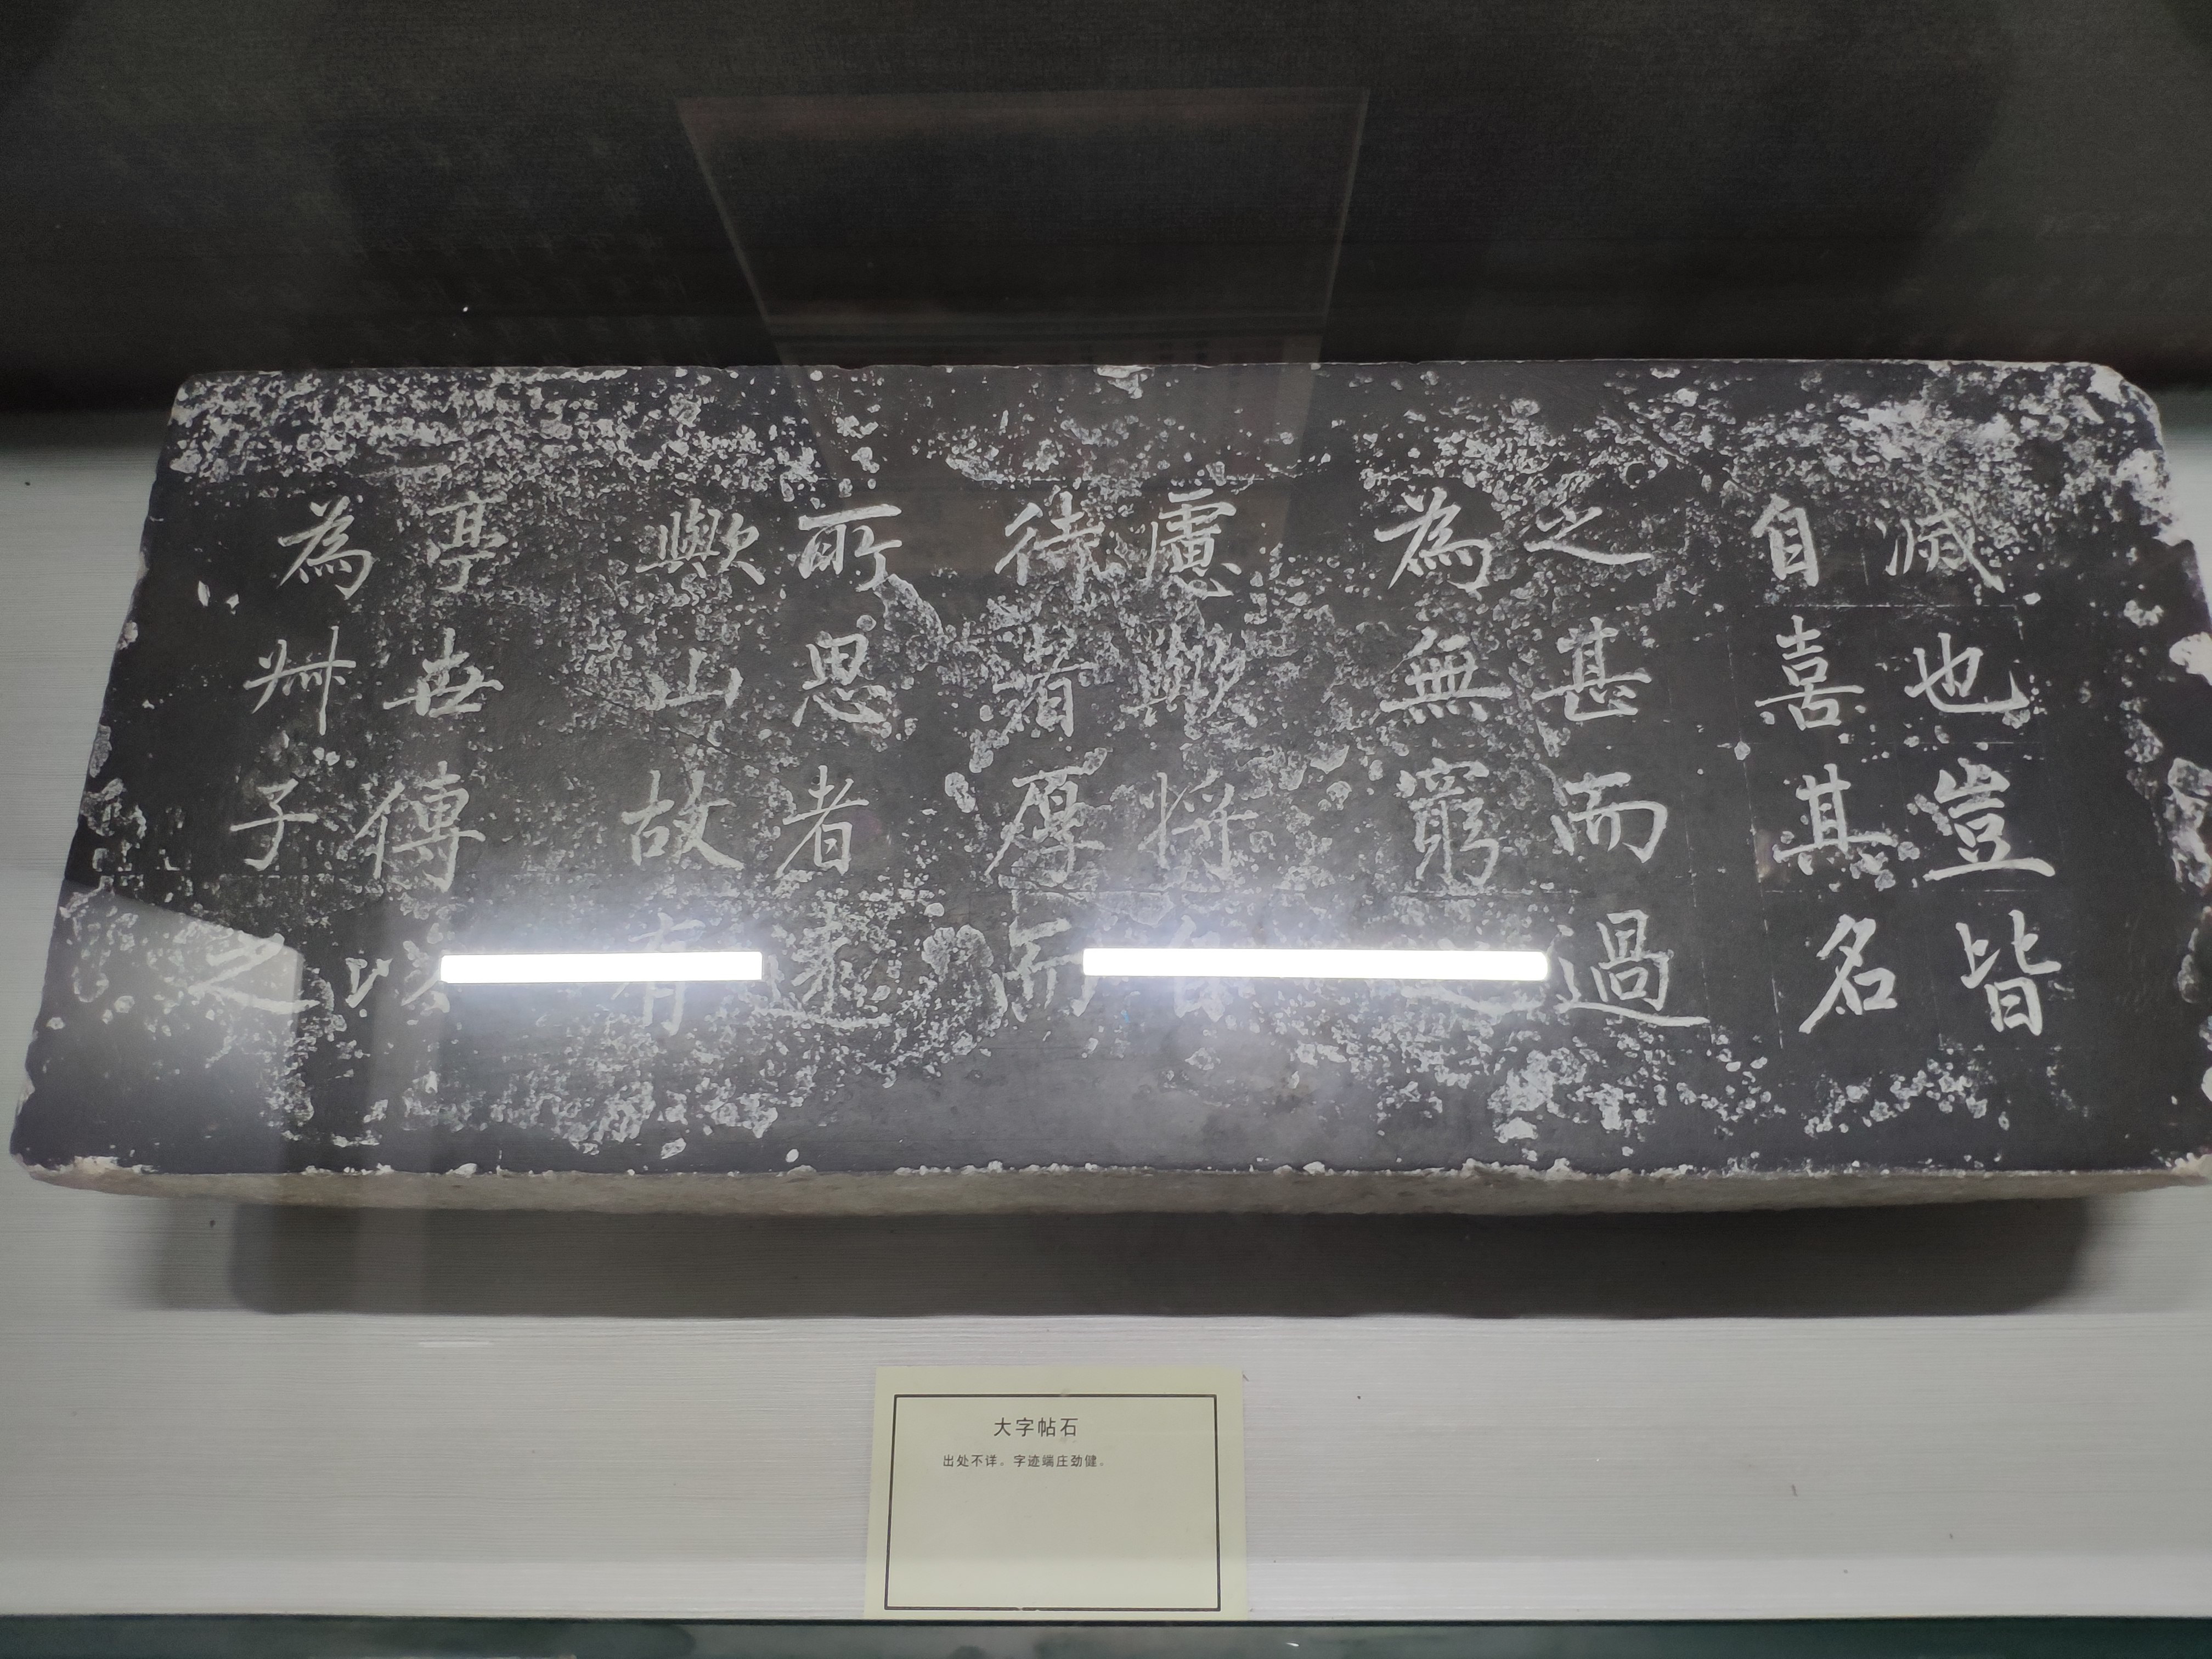 滅也豈皆
自喜其名
之甚而過
為無窮之
慮歟將自
待者厚而
所思者遠
歟山故有
亭世傳以
為叔子之
大字帖石
出处不详。字迹端庄劲健。